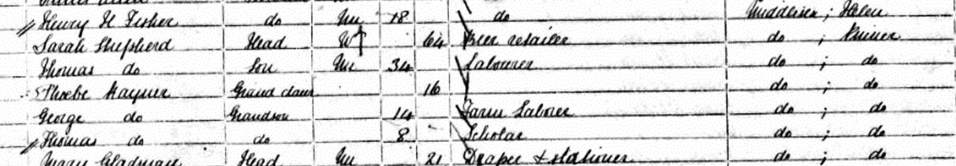 Henry H Fisher do Un 18 do Middlesex ; 
Sarah Shepherd Head W 64 Beer retailer do ; Pinner
Thomas do Son Un 34 Labourer do ; do
Phoebe Rayner Grand daur 16 do ; do
George do Grandson 14 Farm Laborer do ; do
Thomas do do 8 Scholar do ; do
Head Un 21 Draper & stationer do ; do